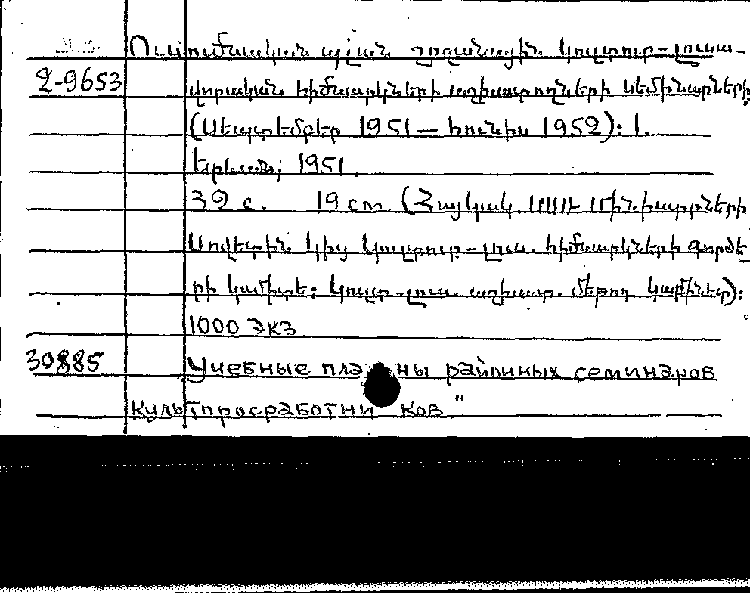 Ուսումնական պլան շրջանային կուլտուր-լուսա-
2-9653 վորական հիմնարկների աշխատողների սեմինարների
(Սեպտեմբեր 1951 — հունիս 1952): 1.
Երևան, 1951.
32 с. 19 cm (Հայկական ՍՍՌ Մին. խորհրդի
Սովետին կից կուլտուր-լուս. հիմնարկների գործե-
րի կոմիտե: Կուլտ-լուս. աշխատ. մեթոդ կաբինետ):
1000 экз
30885 Учебные планы районных семинаров
культпросработников"